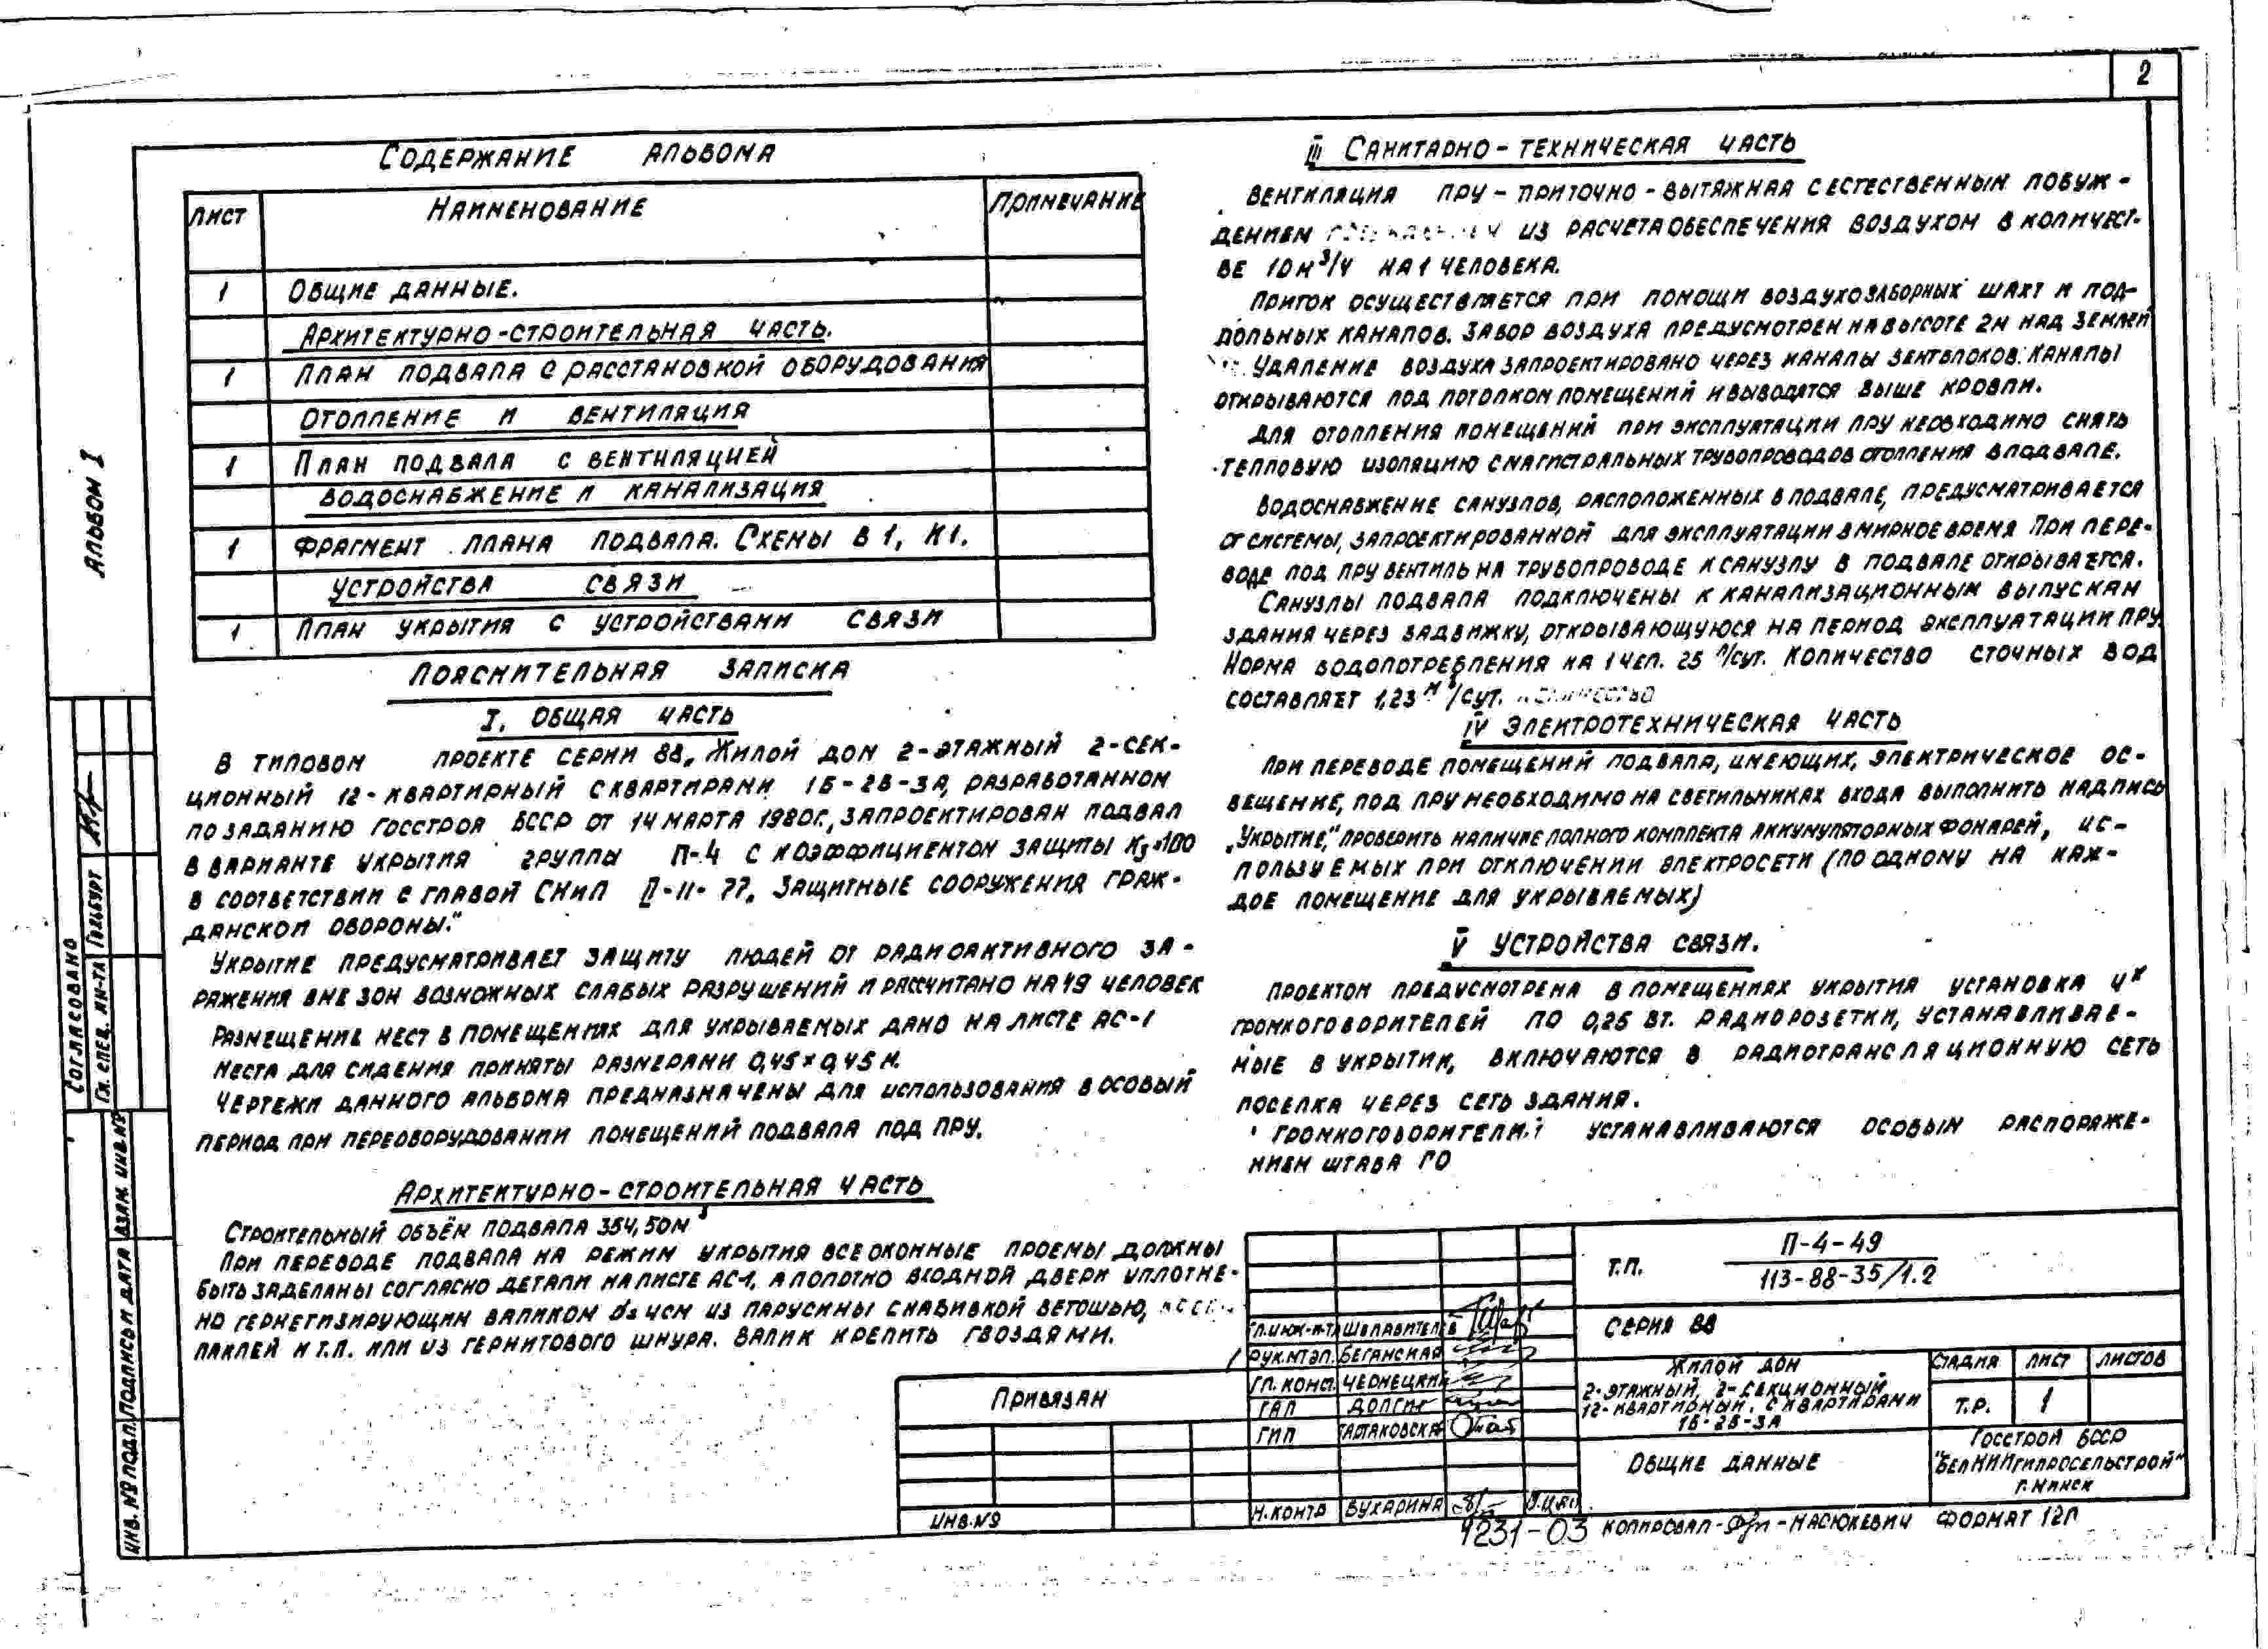 2
Содержание альбома
Лист Наименование Примечание
1 Общие данные.
Архитектурно-строительная часть.
1 План подвала с расстановкой оборудования
Отопление и вентиляция
1 План подвала с вентиляцией
Водоснабжение и канализация
1 Фрагмент плана подвала. Схемы В1, К1.
Устройства связи
1 План укрытия с устройствами связи
Пояснительная записка
I. Общая часть
В типовом проекте серии 88 „Жилой дом 2-этажный 2-сек-
ционный 12-квартирный с квартирами 1Б-2Б-3А, разработанном
по заданию Госстроя БССР от 14 марта 1980г., запроектирован подвал
в варианте укрытия группы П-4 с коэффициентом защиты Кз=100
в соответствии с главой СНиП II-11-77 „Защитные сооружения граж-
данской обороны."
Укрытие предусматривает защиту людей от радиоактивного за-
ражения вне зон возможных слабых разрушений и рассчитано на 49 человек
Размещение мест в помещениях для укрываемых дано на листе АС-1
Места для сидения приняты размерами 0,45×0,45 м.
Чертежи данного альбома предназначены для использования в особый
период при переоборудовании помещений подвала под ПРУ.
Архитектурно-строительная часть
Строительный объём подвала 354,50м³
При переводе подвала на режим укрытия все оконные проемы должны
быть заделаны согласно детали на листе АС-1, а полотно входной двери уплотне-
но герметизирующим валиком d=4см из парусины с набивкой ветошью,
паклей и т.п. или из гернитового шнура. Валик крепить гвоздями.
III Санитарно-техническая часть
Вентиляция ПРУ – приточно-вытяжная с естественным побуж-
дением из расчета обеспечения воздухом в количест-
ве 10м³/ч на 1 человека.
Приток осуществляется при помощи воздухозаборных шахт и под-
польных каналов. Забор воздуха предусмотрен на высоте 2м над землей
Удаление воздуха запроектировано через каналы вентблоков. Каналы
открываются под потолком помещений и выводятся выше кровли.
Для отопления помещений при эксплуатации ПРУ необходимо снять
тепловую изоляцию с магистральных трубопроводов отопления в подвале.
Водоснабжение санузлов, расположенных в подвале, предусматривается
от системы, запроектированной для эксплуатации в мирное время. При пере-
воде под ПРУ вентиль на трубопроводе к санузлу в подвале открывается.
Санузлы подвала подключены к канализационным выпускам
здания через задвижку, открывающуюся на период эксплуатации ПРУ.
Норма водопотребления на 1 чел. 25 л/сут. Количество сточных вод
составляет 1,23 м³/сут.
IV Электротехническая часть
При переводе помещений подвала, имеющих, электрическое ос-
вещение, под ПРУ необходимо на светильниках входа выполнить надпись
„Укрытие", проверить наличие полного комплекта аккумуляторных фонарей, ис-
пользуемых при отключении электросети (по одному на каж-
дое помещение для укрываемых)
V Устройства связи.
Проектом предусмотрена в помещениях укрытия установка 4х
громкоговорителей по 0,25 Вт. Радиорозетки, устанавливае-
мые в укрытии, включаются в радиотрансляционную сеть
поселка через сеть здания.
Громкоговорители устанавливаются особым распоряже-
нием штаба ГО
Альбом I
Согласовано
Гл. спец. ин-та Гельбурт
Взам. инв. №
Подпись и дата
Инв. № подл.
Привязан
Инв. №
Гл. инж. и-та
Рук. мтэп. Беганская
Гл. конс. Чернецкий
ГАП Долгин
ГИП
Н. контр Бухарина
Т.П. П-4-49
113-88-35/1.2
Серия 88
Жилой дом
2-этажный, 2-секционный
12-квартирный, с квартирами
1Б-2Б-3А
Стадия Лист Листов
Т.Р. 1
Общие данные
Госстрой БССР
"БелНИИгипросельстрой"
г. Минск
9231-03 Копировал- -Масюкевич Формат 12Л